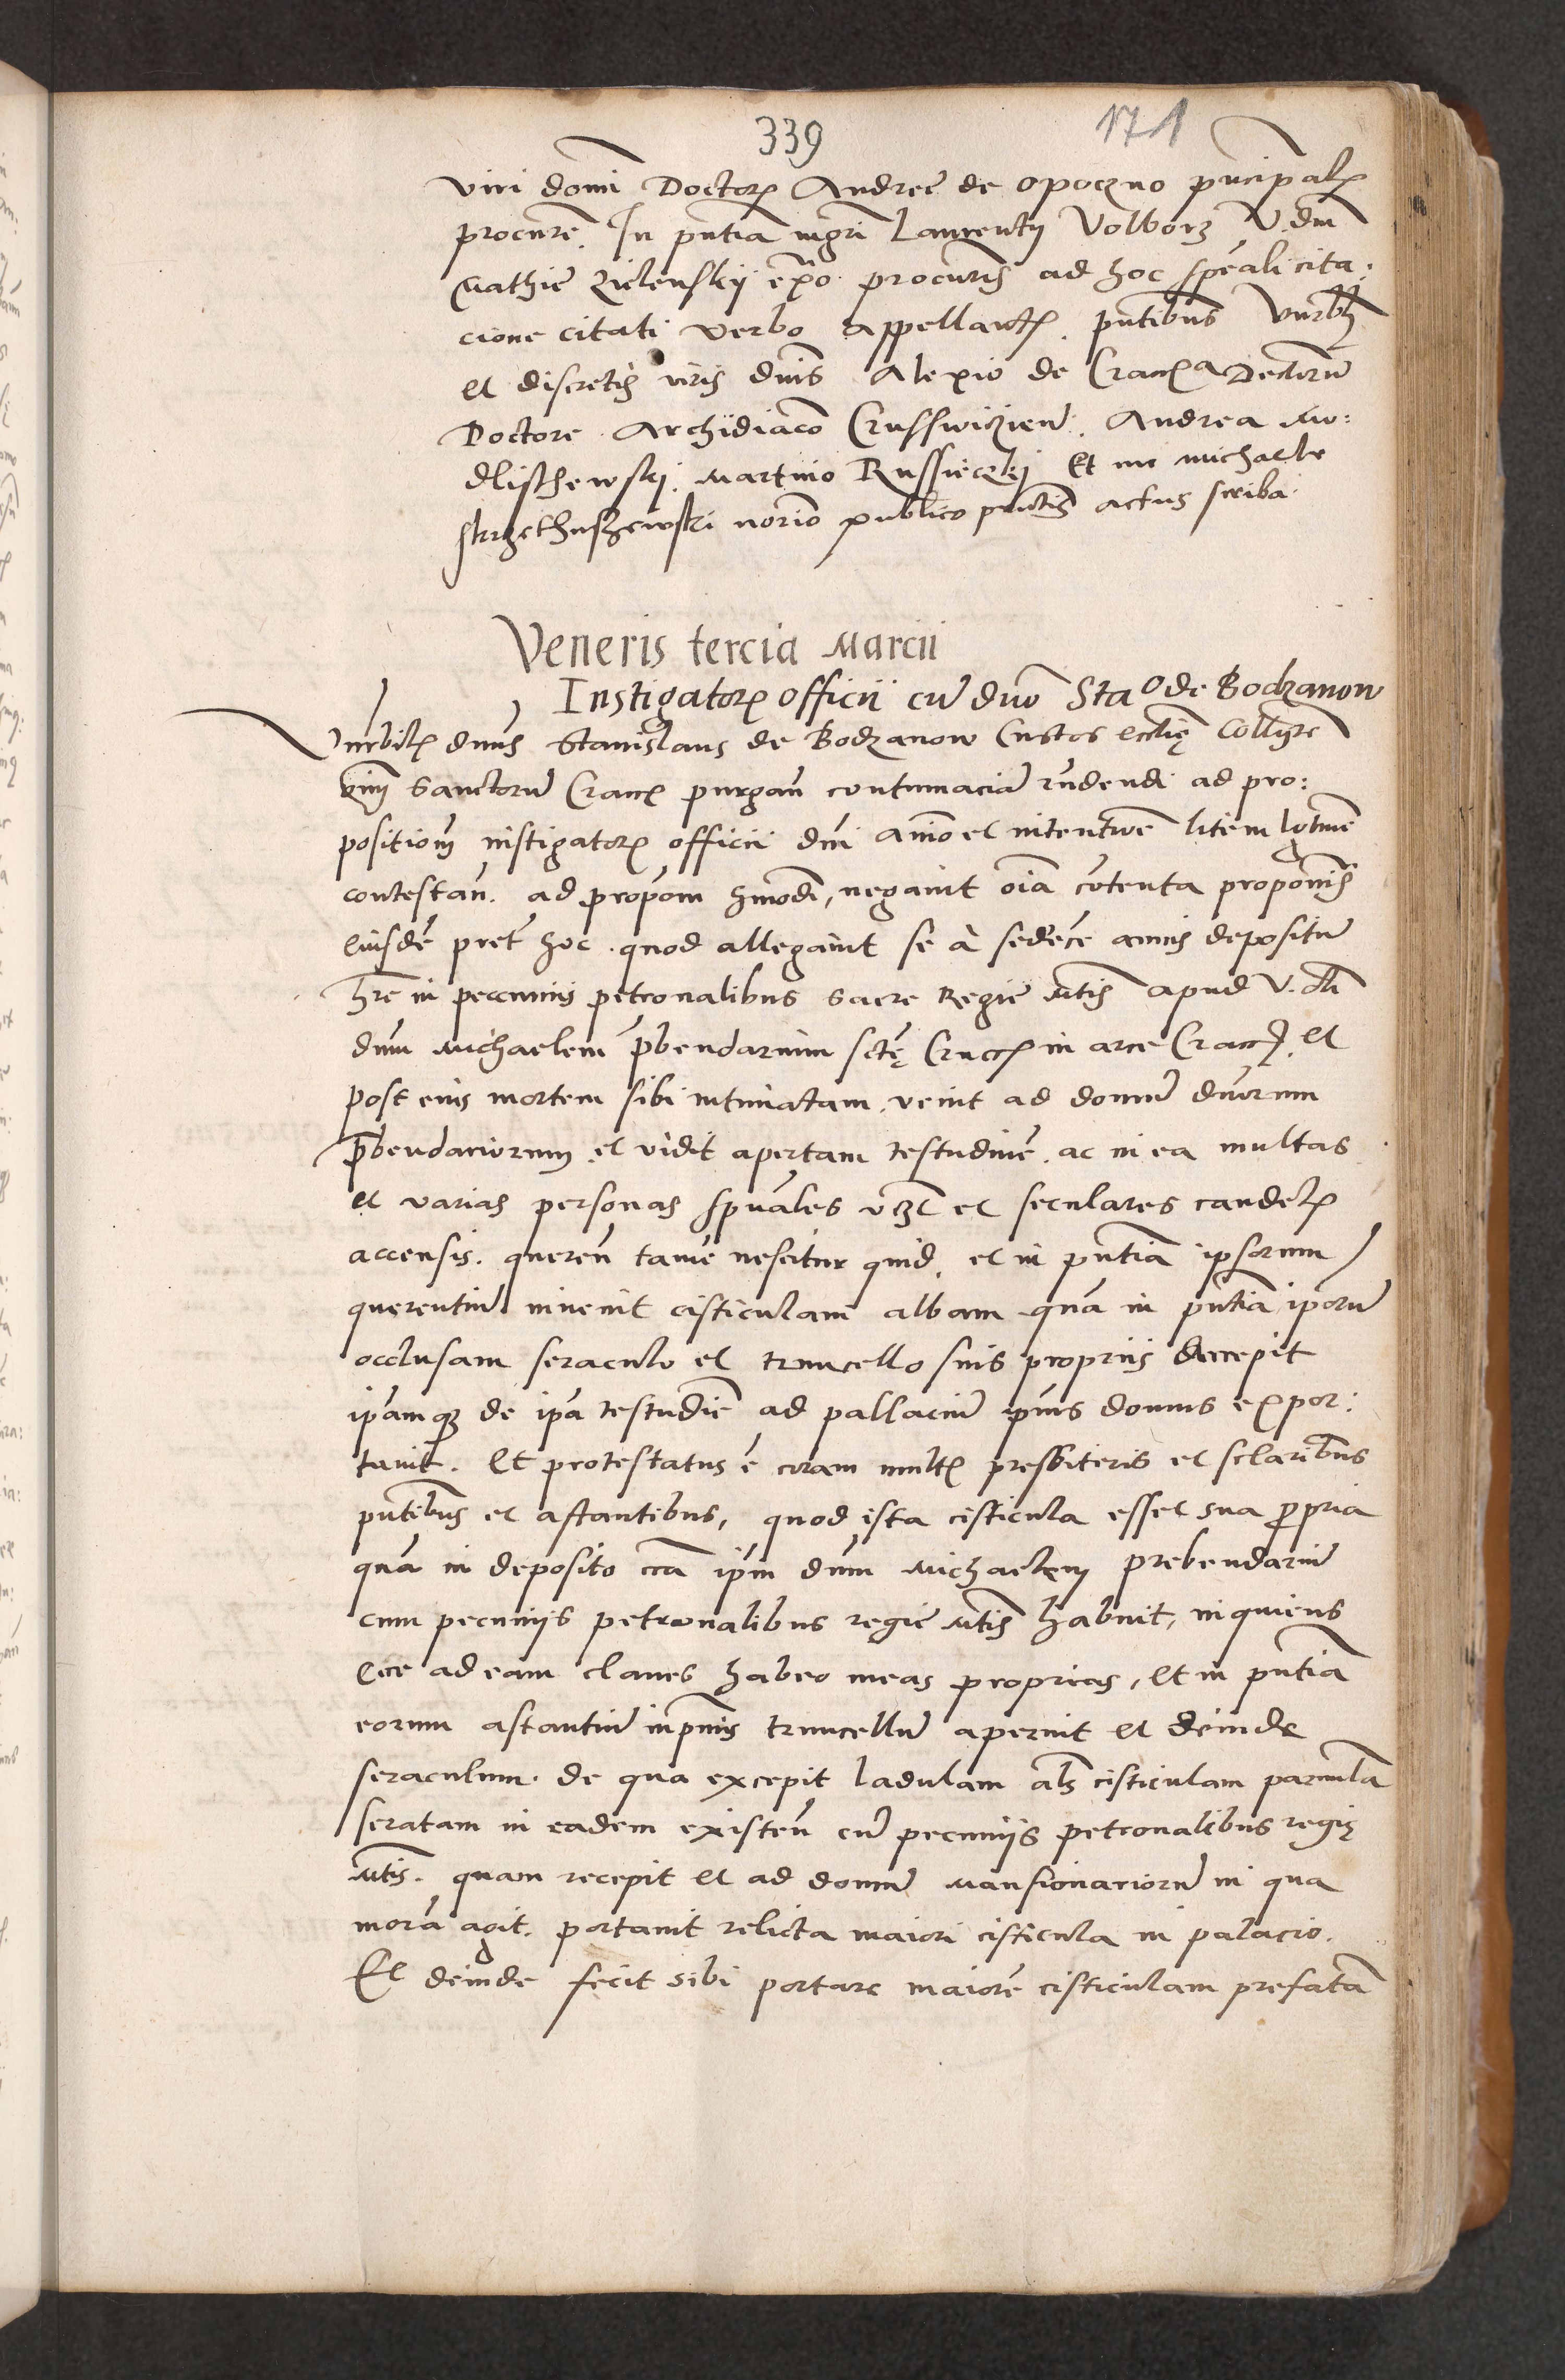 339 171
viri domi Doctor Andree de opoczno pncipal
procure. In pntia mgri Laurentij Volborz V. dni
Mathie Zielenskij ex o procuris ad hoc speali cita:
cione citati verbo appellant. pntibus Vnrbb
et discretis viris dnis Alexio de Crac a Decretoru
Doctore Archidiaco Crusswicien. Andrea Mo:
dlischewski, Martino Russieczki Et me Michaele
strzethuszewski norio publico pntis actus scriba.
Veneris tercia Marcii
Instigator officii cu dno Sta o de Bodzanow
Vnrbil dnus Stanislaus de Bodzanow Custos ecclię Collgte
oim Sanctoru Crac purgan contumacia rndendi ad pro:
positiom instigator officii dni animo et intentioe litem lgtime
contestan. ad propom hmodi, negavit oia cotenta propoonis
eiusde pret hoc. quod allegavit se à sedece annis depositu
hre in peccuniis petronalibus Sacre Regie Mtis apud V. oli
dnm Michaelem prbendarium sctę Cruc in arce Crac, et
post eius mortem sibi intimatam. venit ad domu dnorum
prbendariorum et vidit apertam testudine. ac in ea multas
et varias personas spuales vzl et seculares candel
accensis. queren tame nescitur quid. et in pntia ipsorum
querentiu invenit cisticulam albam qua in pntia iporu
occlusam seraculo et truncello suis propriis decepit
ipamq de ipa testudie ad pallaciu ipius domus expor:
tavit. Et protestatus e coram mult presbiteris et sclaribus
pntibus et astantibus, quod ista cisticula esset sua propria
qua in deposito cca ipm dnm Michaelem prebendariu
cum pecuniis petronalibus regie Mtis habuit, inquiens
Ecce ad eam claves habeo meas proprias, Et in pntia
eorum astantiu inpmis truncellu aperuit et deinde
seraculum. de qua excepit ladulam als cisticulam parvula
seratam in eadem existen cu pecuniis petronalibus regię
Mtis. quam recepit et ad domu Mansionarioru in qua
mora agit. portavit relicta maiori cisticula in palacio.
Et deinde fecit sibi portare maiore cisticulam prefata